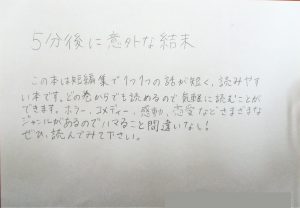 5分後に意外な結末
この本は短編集で1つ1つの話が短く、読みやす
い本です。どの巻からでも読めるので気軽に読むことが
できます。ホラー、コメディー、感動、恋愛などさまざまな
ジャンルがあるのでハマること間違いなし!
ぜひ、読んでみて下さい。